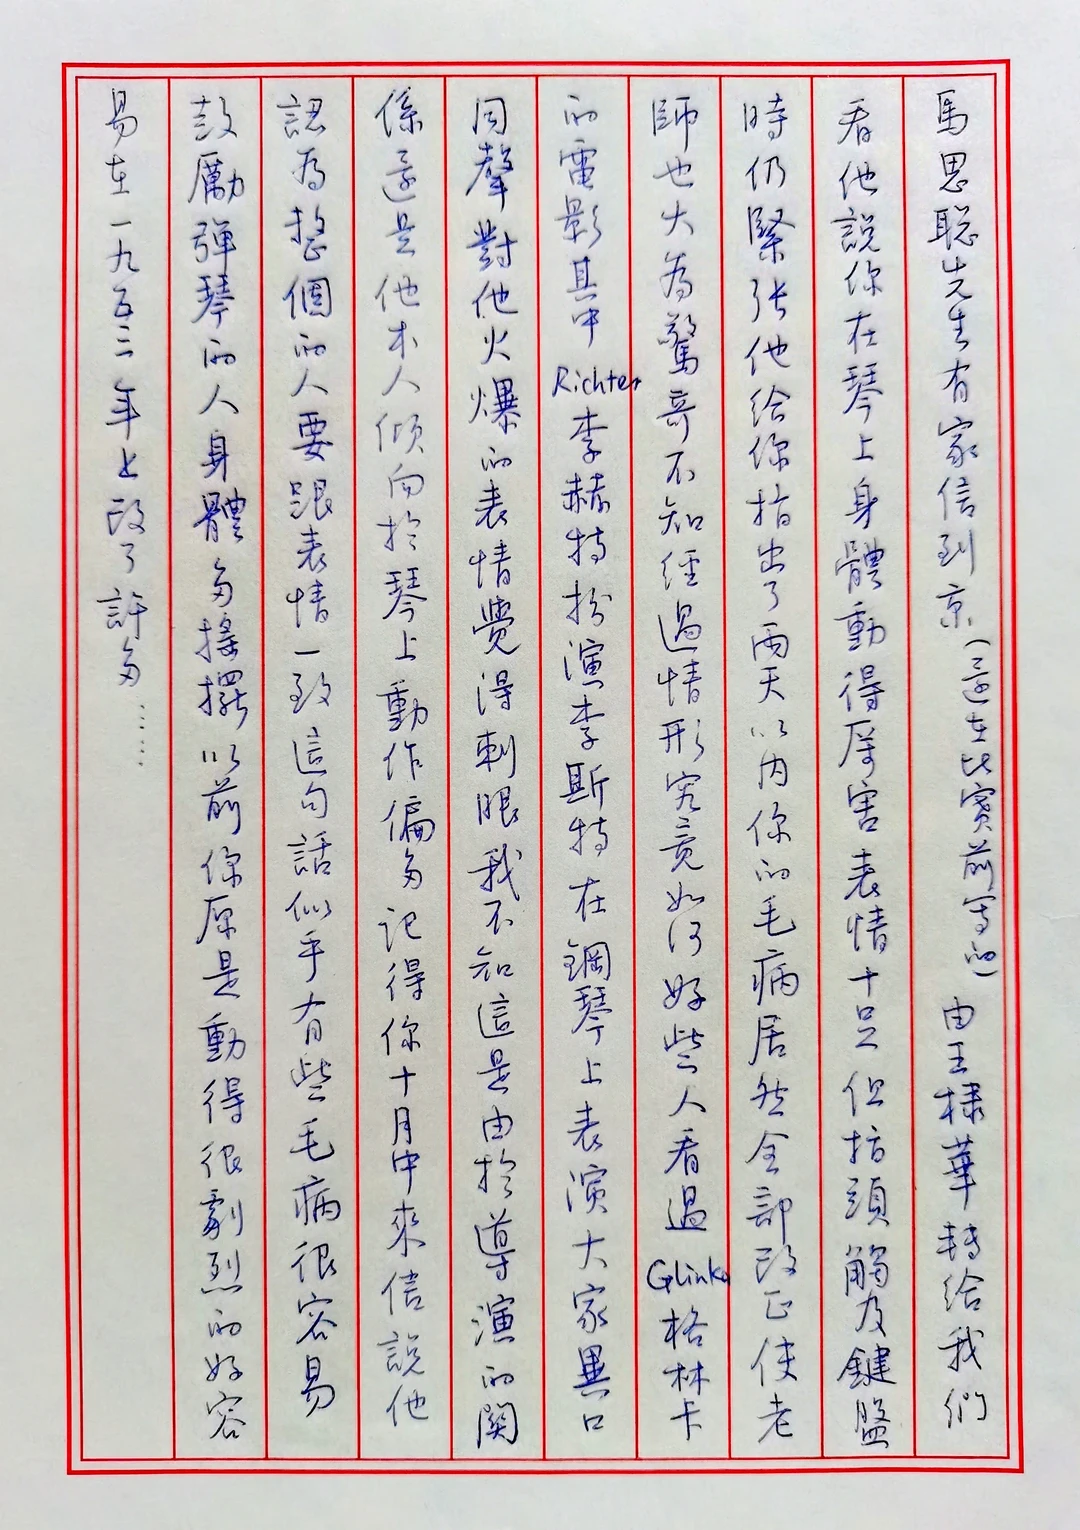 馬思聰先生有家信到京(還在比賽前寫的)由王棣華轉給我們
看他說你在琴上身體動得厲害表情十足但指頭觸及鍵盤
時仍緊張他給你指出了兩天以內你的毛病居然全部改正使老
師也大為驚奇不知經過情形究竟如何好些人看過Glinka格林卡
的電影其中Richter李赫特扮演李斯特在鋼琴上表演大家異口
同聲對他火爆的表情覺得刺眼我不知這是由於導演的関
係還是他本人傾向於琴上動作偏多記得你十月中來信說他
認為整個的人要跟表情一致這句話似乎有些毛病很容易
鼓勵彈琴的人身體多搖擺以前你原是動得很劇烈的好容
易在一九五三年上改了許多……